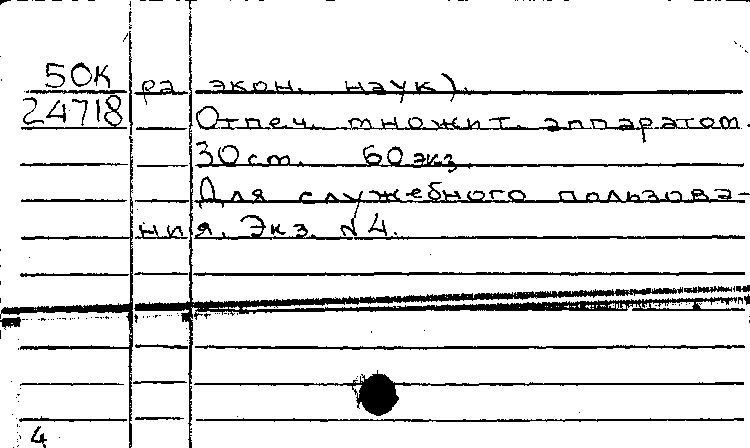 50К ра экон. наук).
24718 Отпеч. множит. аппаратом.
30 cm. 60 экз.
Для служебного пользова-
ния. Экз. №4.
4